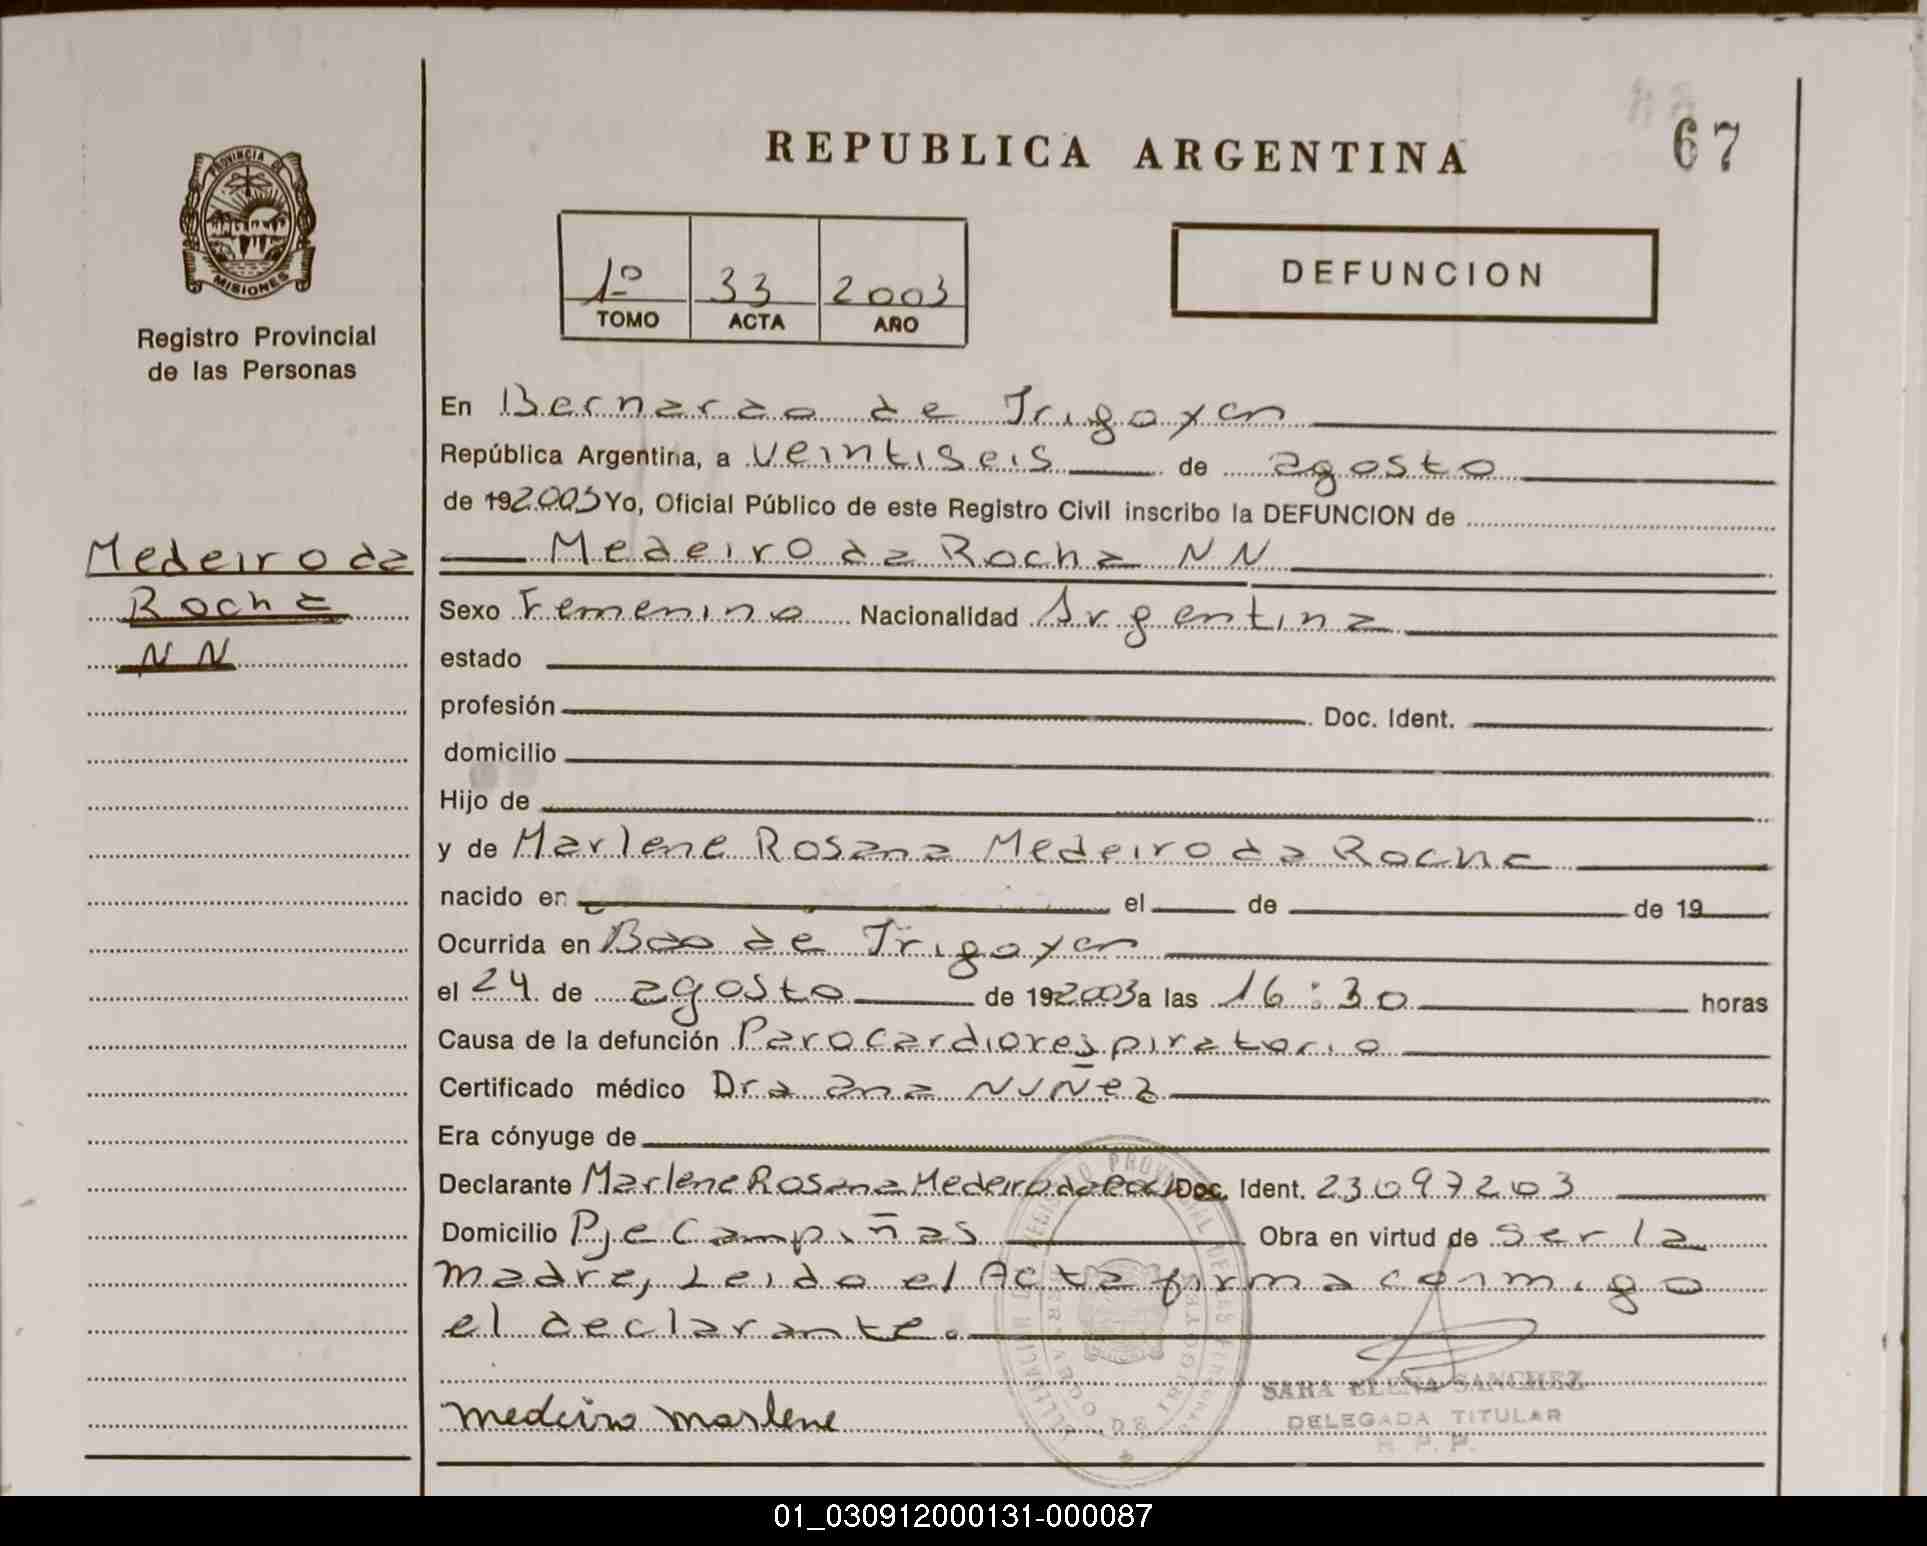 REPUBLICA ARGENTINA
67
PROVINCIA DE
MISIONES
Registro Provincial
de las Personas
1º 33 2003
TOMO ACTA AÑO
DEFUNCION
Medeiro da
Rocha
NN
En Bernardo de Irigoyen
República Argentina, a veintiseis de agosto
de 192003 Yo, Oficial Público de este Registro Civil inscribo la DEFUNCION de
Medeiro da Rocha NN
Sexo Femenino Nacionalidad Argentina
estado
profesión Doc. Ident.
domicilio
Hijo de
y de Marlene Rosana Medeiro da Rocha
nacido en el de de 19
Ocurrida en Bdo de Irigoyen
el 24 de agosto de 192003 a las 16:30 horas
Causa de la defunción Parocardiorespiratorio
Certificado médico Dra Ana NUÑez
Era cónyuge de
Declarante Marlene Rosana Medeiro da Rocha Doc. Ident. 23097203
Domicilio Pje Campiñas Obra en virtud de ser la
madre, Leido el Acta firma conmigo
el declarante.
SARA ELENA SANCHEZ
DELEGADA TITULAR
R. P. P.
medeiro marlene
01_030912000131-000087